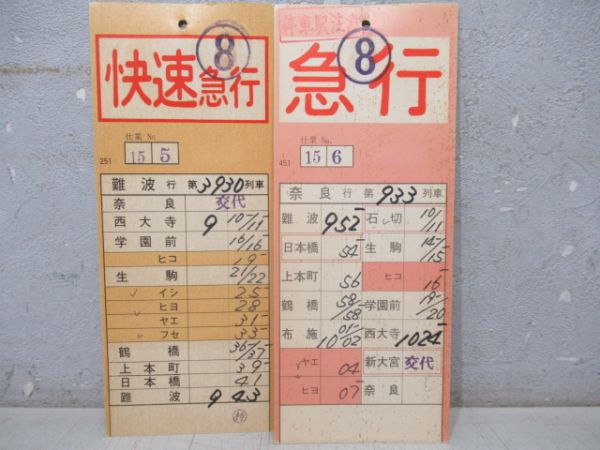 8
快速急行
仕業 No.
251
15 5
難波 行 第 3930 列車
奈良 交代
西大寺 9 10/11
学園前 16/16
ヒコ 19
生駒 21/22
イシ 25
ヒヨ 28
ヤエ 31
フセ 33
鶴橋 36/37
上本町 39
日本橋 41
難波 9 43
停車駅注意
8
急行
仕業 No.
451
15 6
奈良 行 第 933 列車
難波 952
日本橋 54
上本町 56
鶴橋 58/58
布施 10 01/02
ヤエ 04
ヒヨ 07
石切 10/11
生駒 14/15
ヒコ 16
学園前 19/20
西大寺 1024
新大宮 交代
奈良